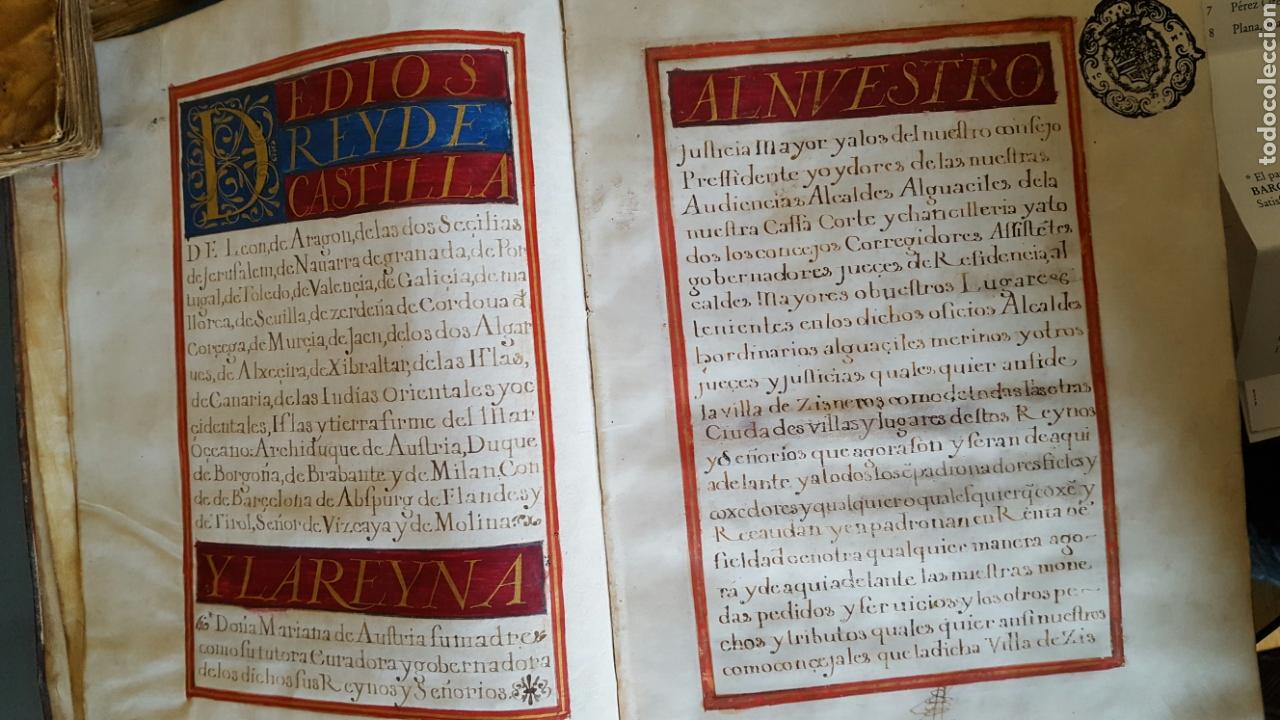 D EDIOS
REYDE
CASTILLA
DE Leon, de Aragon, de las dos Seçilias
de Jerusalem, de Nauarra de granada, de Por
tugal, de Toledo, de Valençia, de Galiçia, de ma
llorca, de Seuilla, de zerdeña de Cordoua d
Corçega, de Murçia, de Jaen, de los dos Algar
ues, de Alxeçira, de Xibraltar, de las Islas,
de Canaria, de las Indias orientales y oc
çidentales, Islas y tierra firme del Mar
Oçeano: Archiduque de Austria, Duque
de Borgoña, de Brabante y de Milan. Con
de de Barçelona de Abspurg de Flandes y
de Tirol, Señor de Vizcaya y de Molina
Y LA REYNA
Doña Mariana de Austria su madre
como su tutora Curadora y gobernadora
de los dichos sus Reynos y Señorios.
AL NVESTRO
Justicia Mayor y a los del nuestro consejo
Pressidente y oydores de las nuestras
Audiencias Alcaldes Alguaciles de la
nuestra Cassa Corte y chancilleria y a to
dos los concejos Corregidores Assistetes
gobernadores jueces de Residencia, al
caldes Mayores o buestros Lugares
tenientes en los dichos oficios Alcaldes
hordinarios alguaçiles merinos y otros
jueces y justicias quales quier ansi de
la villa de Zisneros como de todas las otras
Ciudades villas y lugares destos Reynos
y Señorios que agora son y seran de aqui
adelante y a todos los epadronadores fieles y
coxedores y qualquier o qualesquier q coxe y
Recaudan y enpadronan en Renta o e
fieldad o en otra qualquier manera ago-
ra y de aqui adelante las nuestras mone
das pedidos y seruicios y los otros pe-
chos y tributos quales quier ansi nuestros
como conçejales que la dicha Villa de Zis
7 Pérez
8 Plana
* El pa
BARC
Satis
todocoleccion